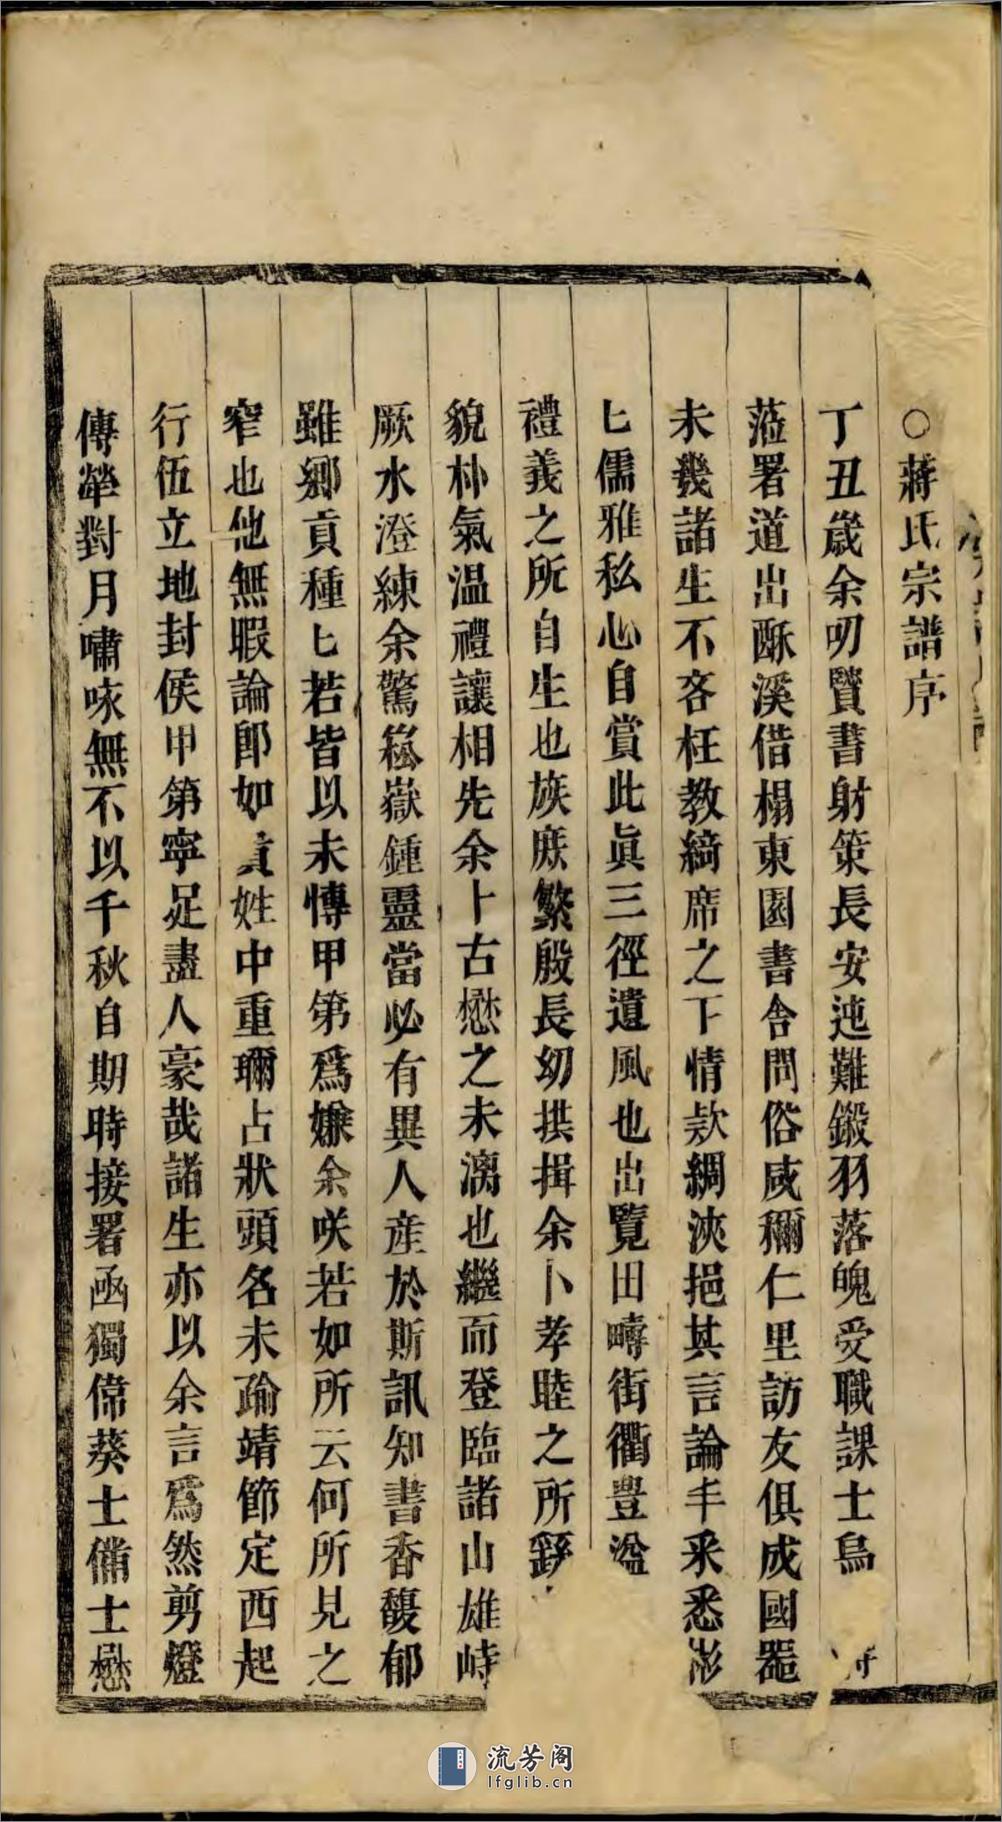 ○蔣氏宗譜序
丁丑歲余叨覽書射策長安迍難鎩羽落魄受職課士烏
蒞署道出酥溪借榻東園書舍問俗咸稱仁里訪友俱成國噐
未幾諸生不吝枉教綺席之下情欵綢浹挹其言論丰采悉彬
匕儒雅私心自賞此眞三徑遺風也出覽田疇街衢豊溢
禮義之所自生也族庶繁殷長幼拱揖余卜孝睦之所
貌朴氣温禮讓相先余卜古懋之未漓也繼而登臨諸山雄峙
厥水澄練余驚嶽鍾靈當必有異人産於斯訊知書香馥郁
雖鄉貢種匕若皆以未慱甲第爲嫌余咲若如所云何所見之
窄也他無暇論郎如貴姓中重瓓占狀頭名未踰靖節定西起
行伍立地封侯甲第寧足盡人豪哉諸生亦以余言爲然剪燈
傳犖對月嘯咏無不以千秋自期時接署函獨偉葵士備士懋
流芳阁
lfglib.cn